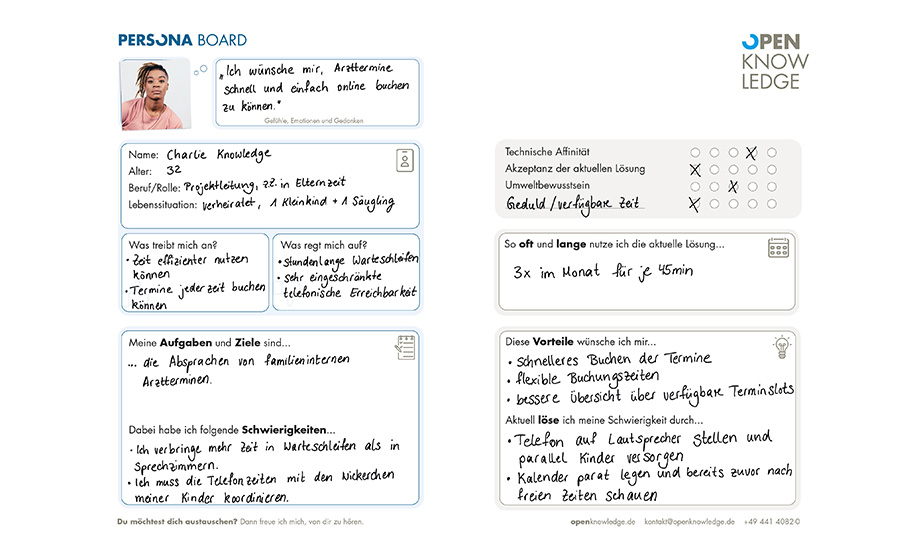 PERSONA BOARD
OPEN
KNOW
LEDGE
„Ich wünsche mir, Arzttermine
schnell und einfach online buchen
zu können."
Gefühle, Emotionen und Gedanken
Name: Charlie Knowledge
Alter: 32
Beruf/Rolle: Projektleitung, z.Z. in Elternzeit
Lebenssituation: verheiratet, 1 Kleinkind + 1 Säugling
Was treibt mich an?
• Zeit effizienter nutzen
können
• Termine jederzeit buchen
können
Was regt mich auf?
• stundenlange Warteschleifen
• sehr eingeschränkte
telefonische Erreichbarkeit
Meine Aufgaben und Ziele sind...
... die Absprachen von familieninternen
Arztterminen.
Dabei habe ich folgende Schwierigkeiten...
• Ich verbringe mehr Zeit in Warteschleifen als in
Sprechzimmern.
• Ich muss die Telefonzeiten mit den Nickerchen
meiner Kinder koordinieren.
Technische Affinität
Akzeptanz der aktuellen Lösung
Umweltbewusstsein
Geduld / verfügbare Zeit
So oft und lange nutze ich die aktuelle Lösung...
3x im Monat für je 45min
Diese Vorteile wünsche ich mir...
• schnelleres Buchen der Termine
• flexible Buchungszeiten
• bessere Übersicht über verfügbare Terminslots
Aktuell löse ich meine Schwierigkeit durch...
• Telefon auf Lautsprecher stellen und
parallel Kinder versorgen
• Kalender parat legen und bereits zuvor nach
freien Zeiten schauen
Du möchtest dich austauschen? Dann freue ich mich, von dir zu hören.
openknowledge.de kontakt@openknowledge.de +49 441 4082-0